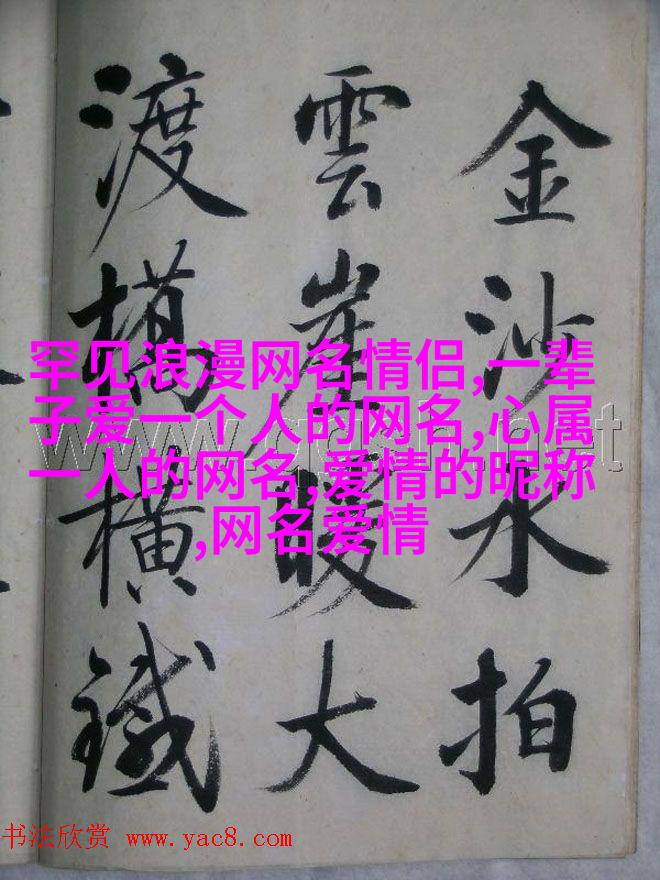 金沙水拍
雲崖暖大
渡橋橫鐵
罕见浪漫网名情侣,一辈
子爱一个人的网名,心属
一人的网名,爱情的昵称
,网名爱情
书法欣赏 www.yac8.com